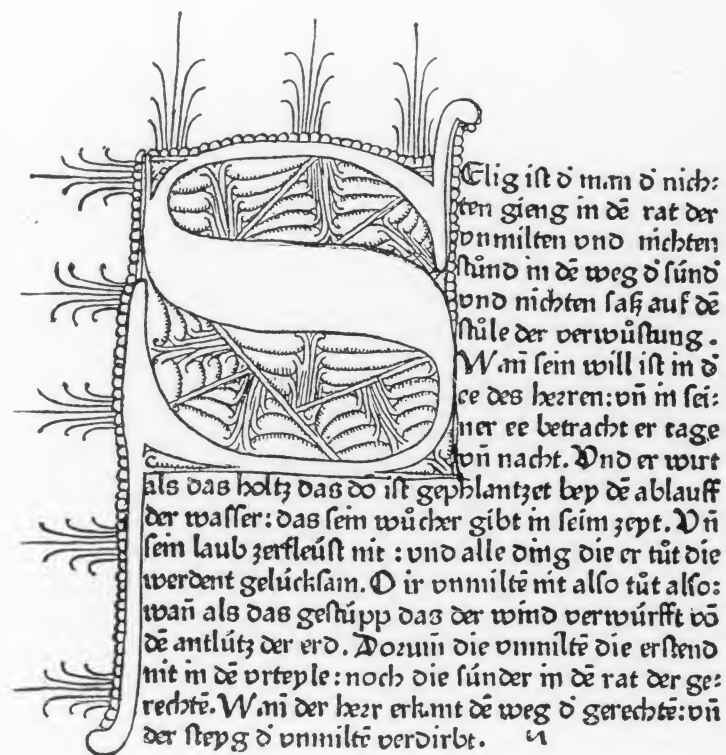 Selig ist d̄ man d̄ nich:
ten gieng in dē rat der
vnmilten vnd nichten
stůnd in dē weg d̄ súnd
vnd nichten saß auf dē
stůle der verwůstung.
Wan̄ sein will ist in d̄
ee des herren: vn̄ in sei:
ner ee betracht er tage
vn̄ nacht. Vnd er wirt
als das holtz das do ist gephlantzet bey dē ablauff
der wasser: das sein wůcher gibt in seim zeyt. Vn̄
sein laub zerfleúst nit: vnd alle ding die er tůt die
werdent gelúcksam. O ir vnmiltē nit also tůt also:
wan̄ als das gestúpp das der wind verwúrfft vō
dē antlútz der erd. Dorum̄ die vnmiltē die erstend
nit in dē vrteyle: noch die súnder in dē rat der ge:
rechtē. Wan̄ der herr erkant dē weg d̄ gerechtē: vn̄
der steyg d̄ vnmiltē verdirbt.